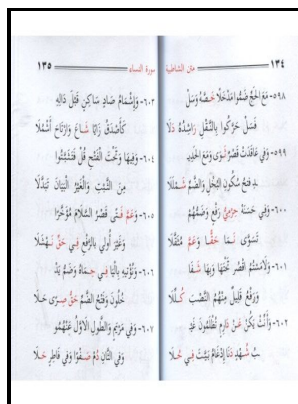 ١٣٤ متن الشاطبية
٥٩٨- مَعَ الْحَجِّ ضَمُّوا مَدْخَلًا خَصَّهُ وَسَلْ
فَسَلْ حَرَّكُوا بِالنَّقْلِ رَاشِدُهُ دَلَا
٥٩٩- وَفِي عَاقَدَتْ قَصْرٌ ثَوَى وَمَعَ الْحَدِيـ
ـدِ فَتْحُ سُكُونِ الْبُخْلِ وَالضَّمِّ شَمْلَلَا
٦٠٠- وَفِي حَسَنَهْ حِرْمِيُّ رَفْعٍ وَضَمُّهُمْ
تَسَوَّى نَمَا حَقًّا وَعَمَّ مُثَقَّلَا
٦٠١- وَلَامَسْتُمُ اقْصُرْ تَحْتَهَا وَبِهَا شَفَا
وَرَفْعُ قَلِيلٌ مِنْهُمُ النَّصْبَ كُلِّلَا
٦٠٢- وَأَنِّثْ يَكُنْ عَنْ دَارِمٍ تُظْلَمُونَ غَيْـ
ـبُ شُهْدٍ دَنَا إِدْغَامُ بَيَّتَ فِي حُلَا
سورة النساء ١٣٥
٦٠٣- وَإِشْمَامُ صَادٍ سَاكِنٍ قَبْلَ دَالِهِ
كَأَصْدَقُ زَايًا شَاعَ وَارْتَاحَ أَشْمُلَا
٦٠٤- وَفِيهَا وَتَحْتَ الْفَتْحِ قُلْ فَتَثَبَّتُوا
مِنَ الثَّبْتِ وَالْغَيْرُ الْبَيَانَ تَبَدَّلَا
٦٠٥- وَعَمَّ فَتًى قَصْرُ السَّلَامَ مُؤَخَّرًا
وَغَيْرَ أُولِي بِالرَّفْعِ فِي حَقِّ نَهْشَلَا
٦٠٦- وَنُؤْتِيهِ بِالْيَا فِي حِمَاهُ وَضَمُّ يَدْ
خُلُونَ وَفَتْحُ الضَّمِّ حَقُّ صِرًى حَلَا
٦٠٧- وَفِي مَرْيَمٍ وَالطَّوْلِ الَاوَّلُ عَنْهُمُ
وَفِي الثَّانِ دُمْ صَفْوًا وَفِي فَاطِرٍ حَلَا